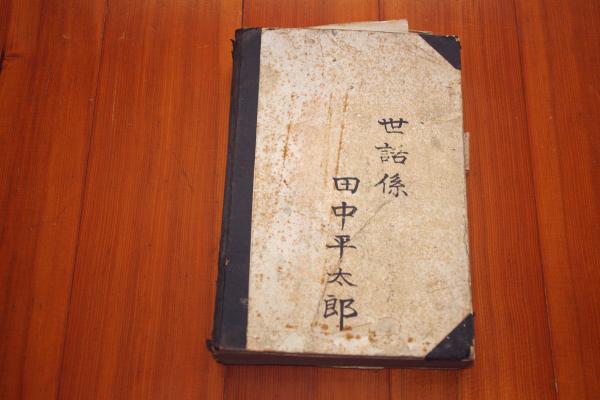 世話係
田中平太郎